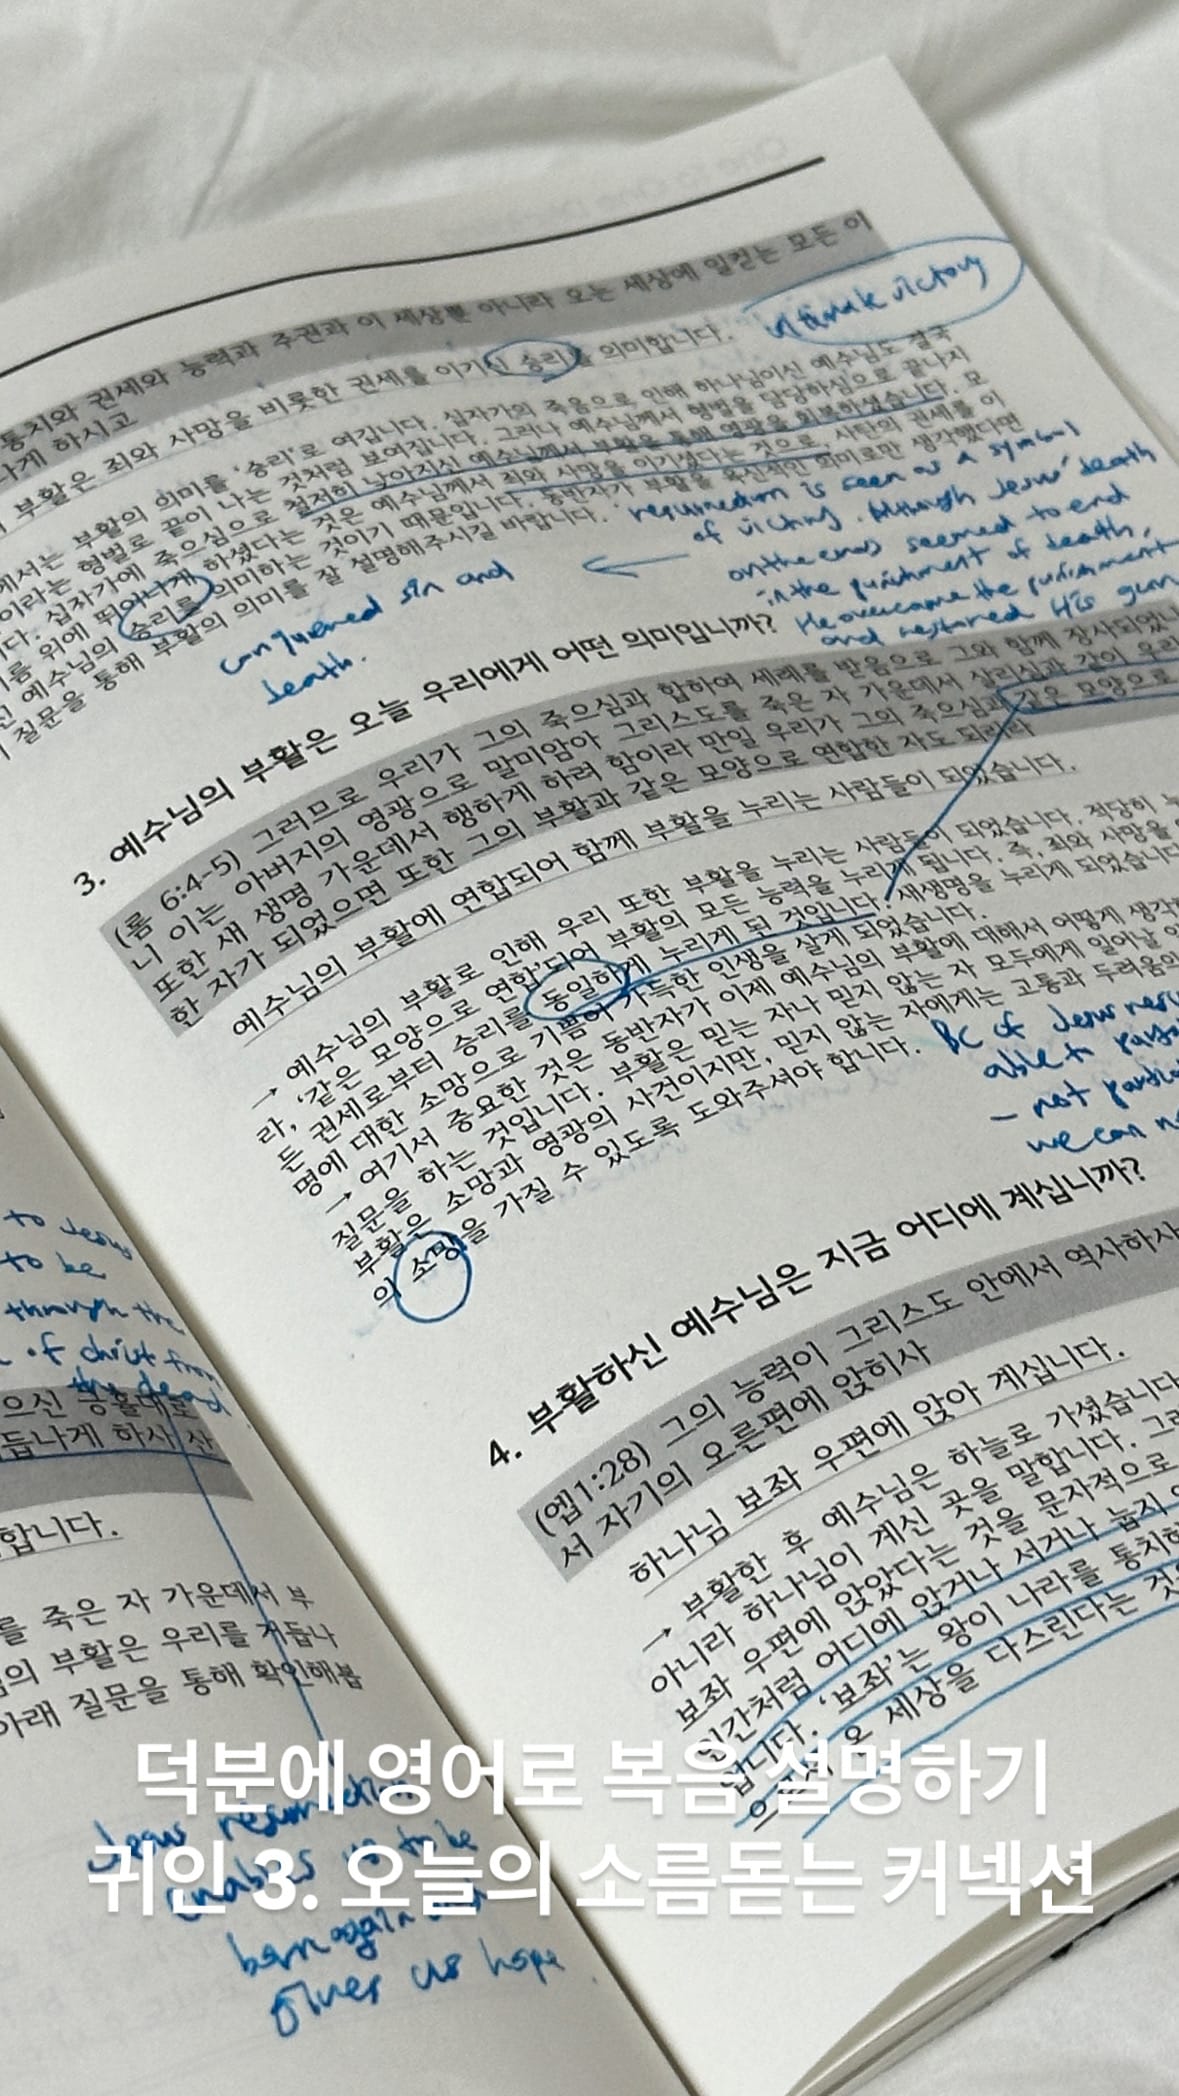 통치와 권세와 능력과 주권과 이 세상뿐 아니라 오는 세상에 일컫는 모든 이
나게 하시고
부활은 죄와 사망을 비롯한 권세를 이기신 승리를 의미합니다.
ultimate victory
에서는 부활의 의미를 '승리'로 여깁니다. 십자가의 죽음으로 인해 하나님이신 예수님도 결국
이라는 형벌로 끝이 나는 것처럼 보여집니다. 그러나 예수님께서 형벌을 담당하심으로 끝나지
다. 십자가에 죽으심으로 철저히 낮아지신 예수님께서 부활을 통해 영광을 회복하셨습니다. 모
름 위에 뛰어나게 하셨다는 것은 예수님께서 죄와 사망을 이기셨다는 것으로, 사탄의 권세를 이
신 예수님의 승리를 의미하는 것이기 때문입니다. 동반자가 부활을 육신적인 의미로만 생각했다면
질문을 통해 부활의 의미를 잘 설명해주시길 바랍니다.
is seen as a symbol
of victory. Although Jesus' death
on the cross seemed to end
in the punishment of death,
He overcame the punishment
and restored His
conquered sin and
death.
3. 예수님의 부활은 오늘 우리에게 어떤 의미입니까?
(롬 6:4-5) 그러므로 우리가 그의 죽으심과 합하여 세례를 받음으로 그와 함께 장사되었
니 이는 아버지의 영광으로 말미암아 그리스도를 죽은 자 가운데서 살리심과 같이 우리
또한 새 생명 가운데서 행하게 하려 함이라 만일 우리가 그의 죽으심과 같은 모양으로
한 자가 되었으면 또한 그의 부활과 같은 모양으로 연합한 자도 되리라
예수님의 부활에 연합되어 함께 부활을 누리는 사람들이 되었습니다.
→ 예수님의 부활로 인해 우리 또한 부활을 누리는 사람들이 되었습니다. 적당히 누
라, '같은 모양으로 연합'되어 부활의 모든 능력을 누리게 됩니다. 즉, 죄와 사망을
든 권세로부터 승리를 동일하게 누리게 된 것입니다. 새생명을 누리게 되었습니다
명에 대한 소망으로 기쁨이 가득한 인생을 살게 되었습니다.
→ 여기서 중요한 것은 동반자가 이제 예수님의 부활에 대해서 어떻게 생각
질문을 하는 것입니다. 부활은 믿는 자나 믿지 않는 자 모두에게 일어날
부활은 소망과 영광의 사건이지만, 믿지 않는 자에게는 고통과 두려움의
의 소망을 가질 수 있도록 도와주셔야 합니다.
BC of Jesus
able to
- not
we can
4. 부활하신 예수님은 지금 어디에 계십니까?
(엡1:28) 그의 능력이 그리스도 안에서 역사하사
서 자기의 오른편에 앉히사
하나님 보좌 우편에 앉아 계십니다.
→ 부활한 후 예수님은 하늘로 가셨습니다
아니라 하나님이 계신 곳을 말합니다. 그
보좌 우편에 앉았다는 것을 문자적으로
인간처럼 어디에 앉거나 서거나 눕지
입니다. '보좌'는 왕이 나라를 통치
온 세상을 다스린다는 것
to Jesus
to be
through the
of christ from
the dead
으신 긍휼대로
듭나게 하사 산
합니다.
를 죽은 자 가운데서 부
님의 부활은 우리를 거듭나
아래 질문을 통해 확인해봅
Jesus resurrection
enables us to be
born again and
gives us hope.
덕분에 영어로 복음 설명하기
귀인 3. 오늘의 소름돋는 커넥션